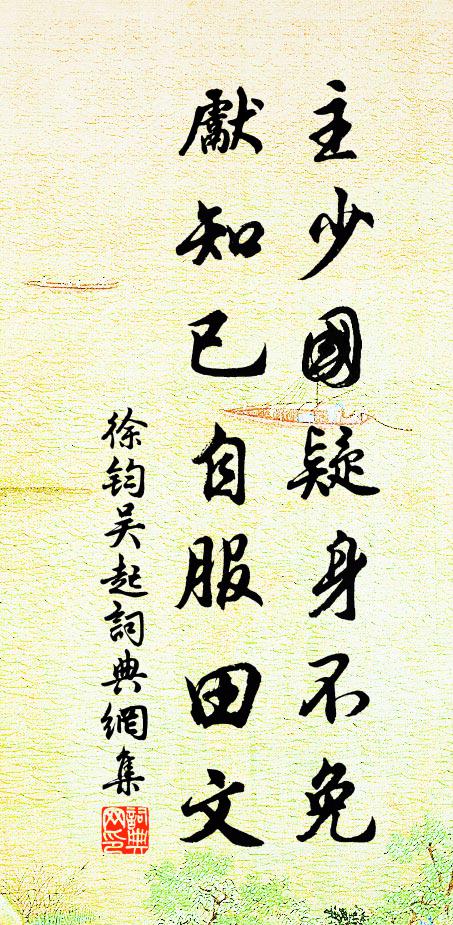 主少國疑身不免
獻知已自服田文
徐鈞吳起詞典網集
詞典网印